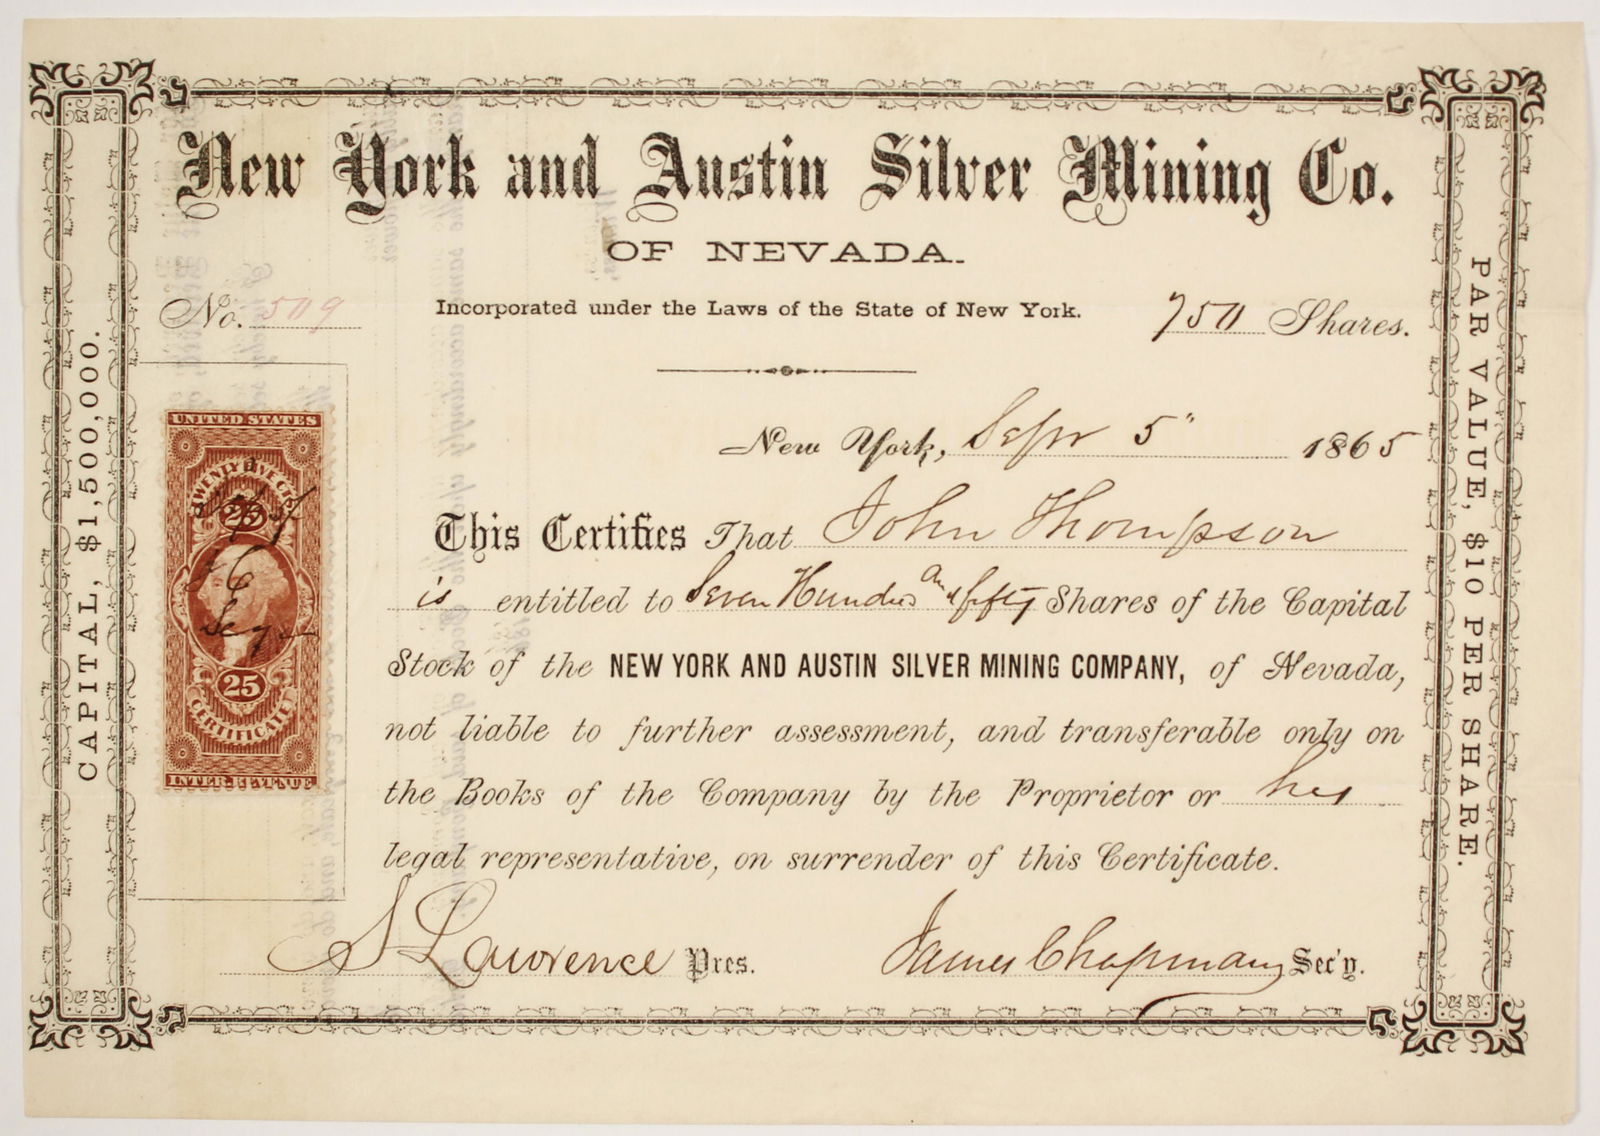 New York and Austin Silver Mining Co.
OF NEVADA.
Incorporated under the Laws of the State of New York.
No. 509
750 Shares.
New York, Sepr 5" 1865
This Certifies That John Thompson
is entitled to Seven Hundred and fifty Shares of the Capital
Stock of the NEW YORK AND AUSTIN SILVER MINING COMPANY, of Nevada,
not liable to further assessment, and transferable only on
the Books of the Company by the Proprietor or his
legal representative, on surrender of this Certificate.
S Lawrence Pres.
James Chapman Sec'y.
CAPITAL, $1,500,000.
PAR VALUE, $10 PER SHARE.
UNITED STATES
TWENTY FIVE CTS
25
25
CERTIFICATE
INTER. REVENUE